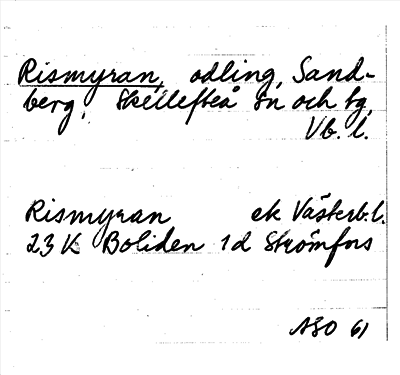 Rismyran, odling, Sand-
berg, Skellefteå sn och tg,
Vb. l.
Rismyran ek Västerb. l.
23 K Boliden 1d Strömfors
ASO 61